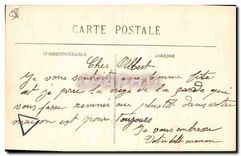 CARTE POSTALE
CORRESPONDANCE ADRESSE
Cher Albert
Je vous souhait une bonne fête
et je prie la vierge de la garde qui
vous fasse revenir au plustot dans votre
maison est pour toujours
Je vous embrasse
Votre belle maman